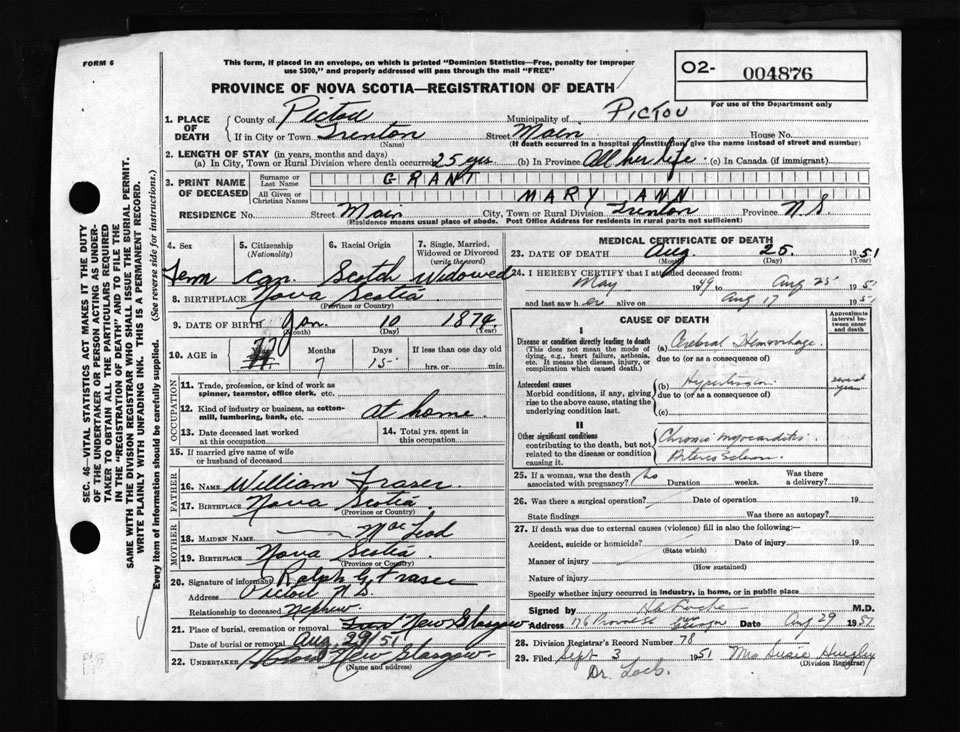 FORM 6
This form, if placed in an envelope, on which is printed "Dominion Statistics—Free, penalty for improper
use $300," and properly addressed will pass through the mail "FREE"
O2- 004876
For use of the Department only
PROVINCE OF NOVA SCOTIA—REGISTRATION OF DEATH
1. PLACE OF DEATH
County of Pictou Municipality of PICTOU
If in City or Town Trenton Street Main House No.
(Name) (If death occurred in a hospital or institution, give name instead of street and number)
2. LENGTH OF STAY (in years, months and days)
(a) In City, Town or Rural Division where death occurred 25 yrs. (b) In Province All her life. (c) In Canada (if immigrant)
3. PRINT NAME OF DECEASED
Surname or Last Name GRANT
All Given or Christian Names MARY ANN
RESIDENCE No. Street Main City, Town or Rural Division Trenton Province N.S.
(Residence means usual place of abode. Post Office Address for residents in rural parts not sufficient)
4. Sex 5. Citizenship (Nationality) 6. Racial Origin 7. Single, Married, Widowed or Divorced (write the word)
Fem Can. Scotch Widowed
8. BIRTHPLACE Nova Scotia
(Province or Country)
9. DATE OF BIRTH Jan. 10 1874
(Month) (Day) (Year)
10. AGE in 77 Months 7 Days 15 If less than one day old hrs. or min.
OCCUPATION
11. Trade, profession, or kind of work as spinner, teamster, office clerk, etc.
12. Kind of industry or business, as cotton-mill, lumbering, bank, etc. at home.
13. Date deceased last worked at this occupation
14. Total yrs. spent in this occupation
15. If married give name of wife or husband of deceased
FATHER
16. Name William Fraser
17. Birthplace Nova Scotia
(Province or Country)
MOTHER
18. Maiden Name —— MacLeod
19. Birthplace Nova Scotia
(Province or Country)
20. Signature of informant Ralph G. Fraser
Address Pictou N.S.
Relationship to deceased Nephew.
21. Place of burial, cremation or removal New Glasgow
Date of burial or removal Aug. 29/51
22. UNDERTAKER New Glasgow
(Name and address)
MEDICAL CERTIFICATE OF DEATH
23. DATE OF DEATH Aug. 25. 1951
(Month) (Day) (Year)
24. I HEREBY CERTIFY that I attended deceased from:
May 1949 Aug 25 1951
and last saw her alive on Aug 17 1951
CAUSE OF DEATH
Approximate interval between onset and death
I
Disease or condition directly leading to death
(This does not mean the mode of dying, e.g., heart failure, asthenia, etc. It means the disease, injury, or complication which caused death.)
(a) Cerebral Hemorrhage.
due to (or as a consequence of)
Antecedent causes
Morbid conditions, if any, giving rise to the above cause, stating the underlying condition last.
(b) Hypertension
due to (or as a consequence of)
several years
(c)
II
Other significant conditions
contributing to the death, but not related to the disease or condition causing it.
Chronic myocarditis.
25. If a woman, was the death associated with pregnancy? no Duration weeks. Was there a delivery?
26. Was there a surgical operation? Date of operation 19
State findings Was there an autopsy?
27. If death was due to external causes (violence) fill in also the following:—
Accident, suicide or homicide? Date of injury 19
(State which)
Manner of injury
(How sustained)
Nature of injury
Specify whether injury occurred in industry, in home, or in public place
Signed by M.D.
Address 176 Provost St New Glasgow Date Aug 29 1951
28. Division Registrar's Record Number 78
29. Filed Sept 3 1951 Mrs Susie
(Division Registrar)
Dr.
SEC. 46—VITAL STATISTICS ACT MAKES IT THE DUTY
OF THE UNDERTAKER OR PERSON ACTING AS UNDER-
TAKER TO OBTAIN ALL THE PARTICULARS REQUIRED
IN THE "REGISTRATION OF DEATH" AND TO FILE THE
SAME WITH THE DIVISION REGISTRAR WHO SHALL ISSUE THE BURIAL PERMIT.
WRITE PLAINLY WITH UNFADING INK. THIS IS A PERMANENT RECORD.
Every item of information should be carefully supplied. (See reverse side for instructions.)